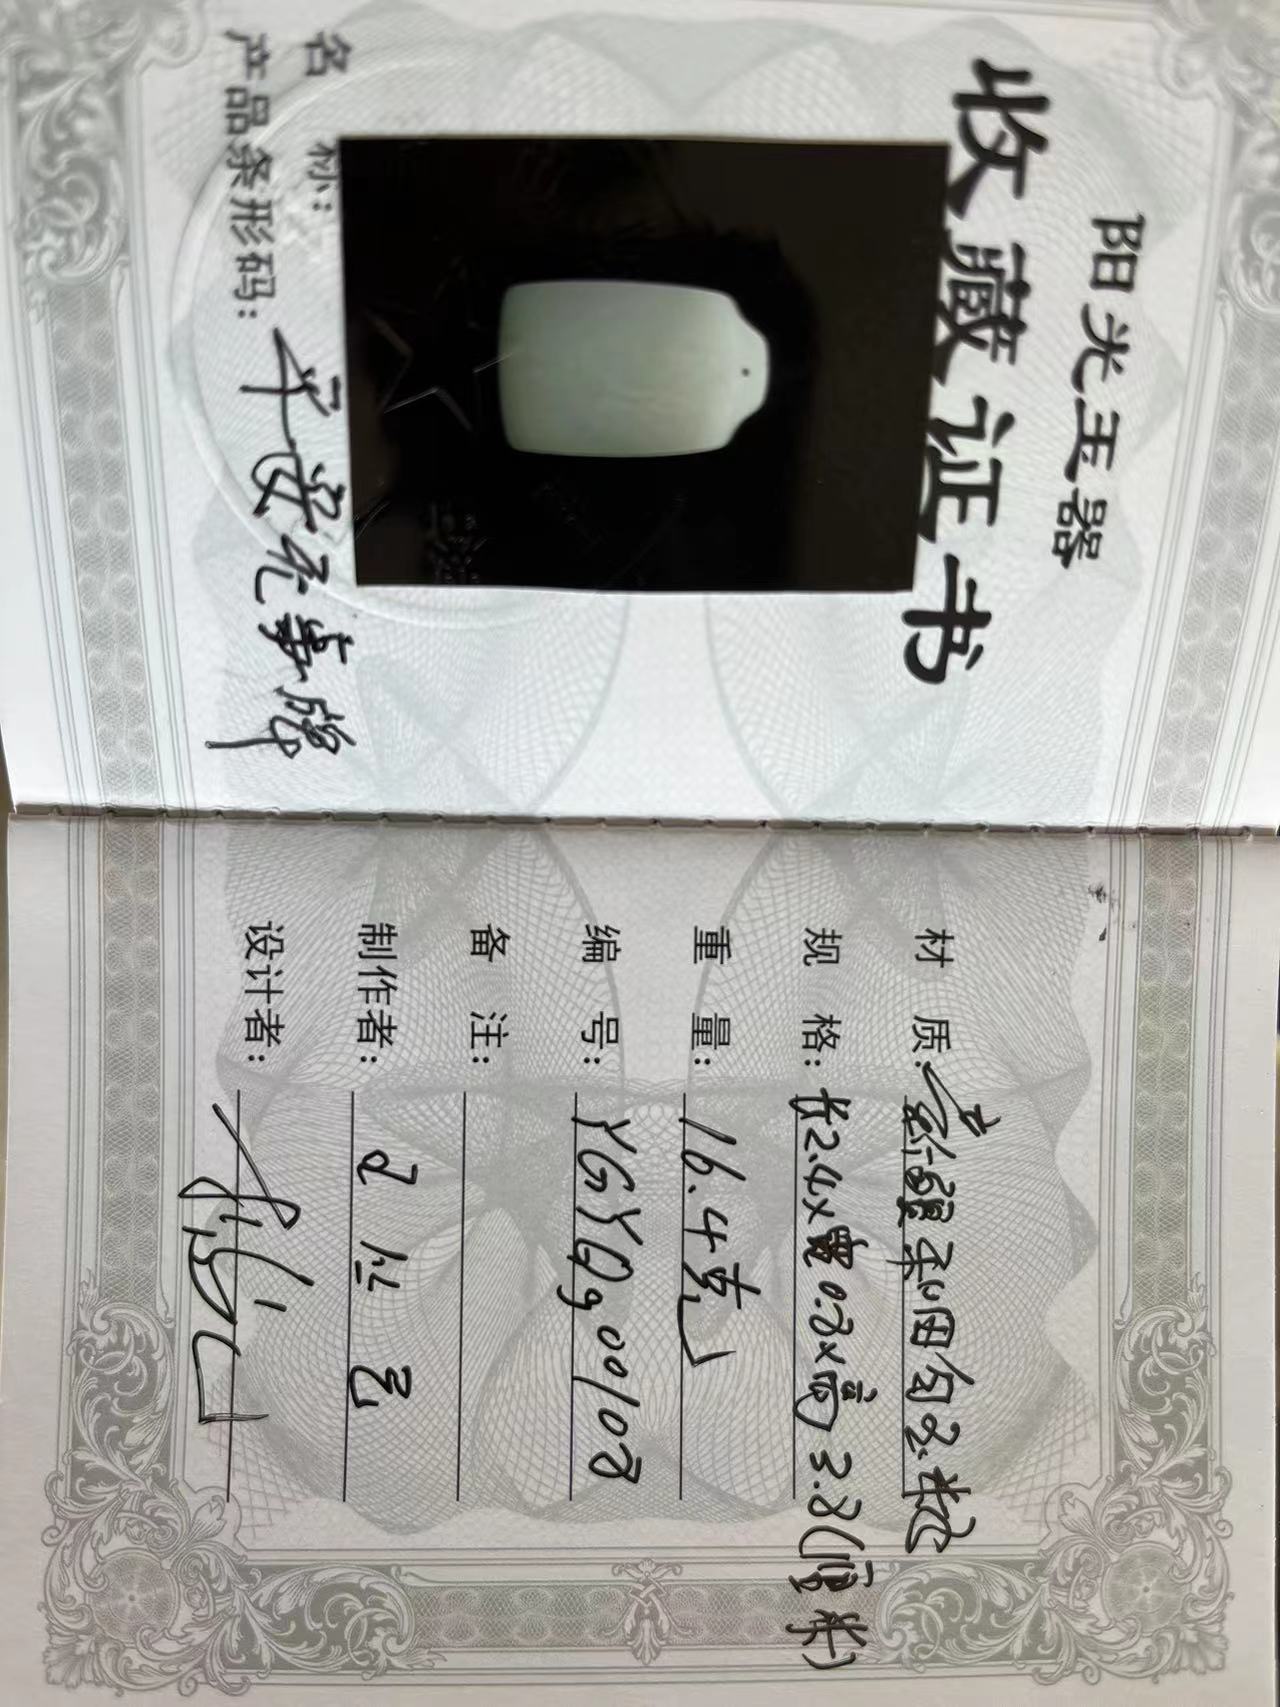 阳光玉器
收藏证书
名 称:
产品条形码: 平安无事牌
材 质: 新疆和田白玉籽
规 格: 长2.4x宽0.8x高3.8(厘米)
重 量: 16.4克
编 号: YGYQg00108
备 注:
制作者:
设计者: